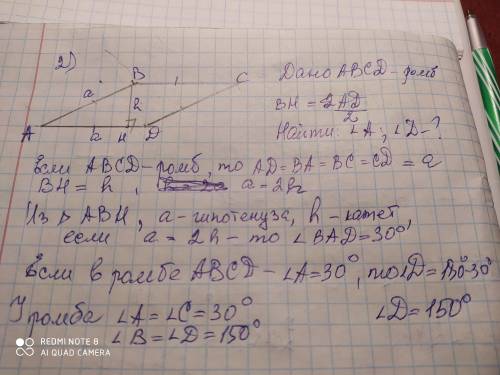 2)
B C
a
h
A a H D
Дано ABCD - ромб
BH = 2AD/2
Найти: ∠A; ∠D - ?
Если ABCD - ромб, то AD = BA = BC = CD = a
BH = h, a = 2h
Из ▷ ABH, a - гипотенуза, h - катет,
если a = 2h - то ∠BAD = 30°,
Если в ромбе ABCD - ∠A = 30°, то ∠D = 180°-30°
∠D = 150°
У ромба ∠A = ∠C = 30°
∠B = ∠D = 150°
REDMI NOTE 8
AI QUAD CAMERA